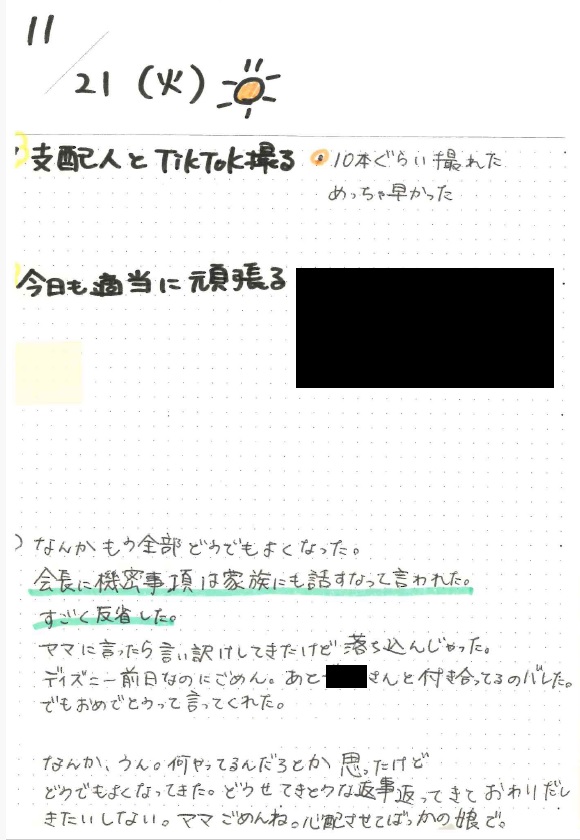 11/21 (火)
支配人とTikTok撮る
10本ぐらい撮れた
めっちゃ早かった
今日も適当に頑張る
なんかもう全部どうでもよくなった。
会長に機密事項は家族にも話すなって言われた。
すごく反省した。
ママに言ったら言い訳してきたけど落ち込んじゃった。
ディズニー前日なのにごめん。あと さんと付き合ってるのバレた。
でもおめでとうって言ってくれた。
なんか、うん。何やってるんだろとか思ったけど
どうでもよくなってきた。どうせてきとうな返事返ってきておわりだし
きたいしない。ママごめんね。心配させてばっかの娘で。